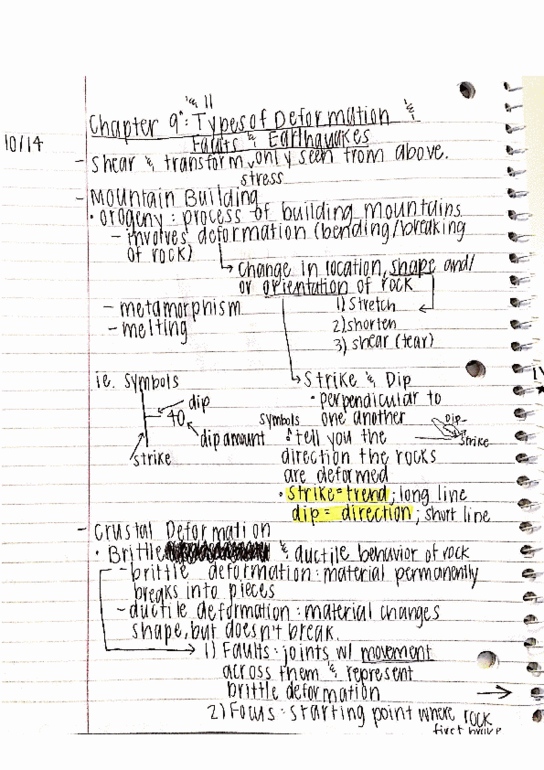 & 11
Chapter 9: Types of Deformation &
Faults & Earthquakes
10/14
- Shear & transform, only seen from above.
stress
- Mountain Building
• orogeny: process of building mountains
- involves deformation (bending/breaking
of rock)
→ change in location, shape and/
or orientation of rock
- metamorphism
- melting
1) Stretch
2) shorten
3) shear (tear)
→ Strike & Dip
• perpendicular to
one another
ie. Symbols
dip
40
dip amount
strike
Symbols
Dip
Strike
• tell you the
direction the rocks
are deformed
• strike = trend; long line
dip = direction, short line
- Crustal Deformation
• Brittle & ductile behavior of rock
- brittle deformation: material permanently
breaks into pieces
- ductile deformation: material changes
shape, but doesn't break.
→ 1) Faults: joints w/ movement
across them & represent
brittle deformation →
2) Focus: starting point where rock
first